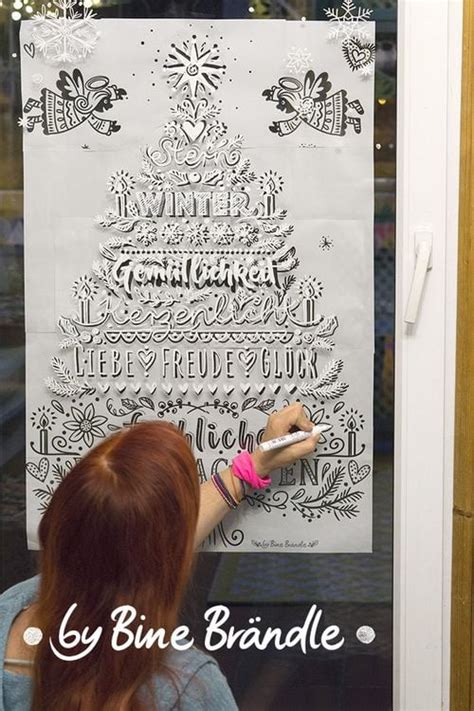 Stern
WINTER
Gemütlichkeit
Kerzenlicht
LIEBE FREUDE GLÜCK
Fröhliche
by Bine Brändle
by Bine Brändle